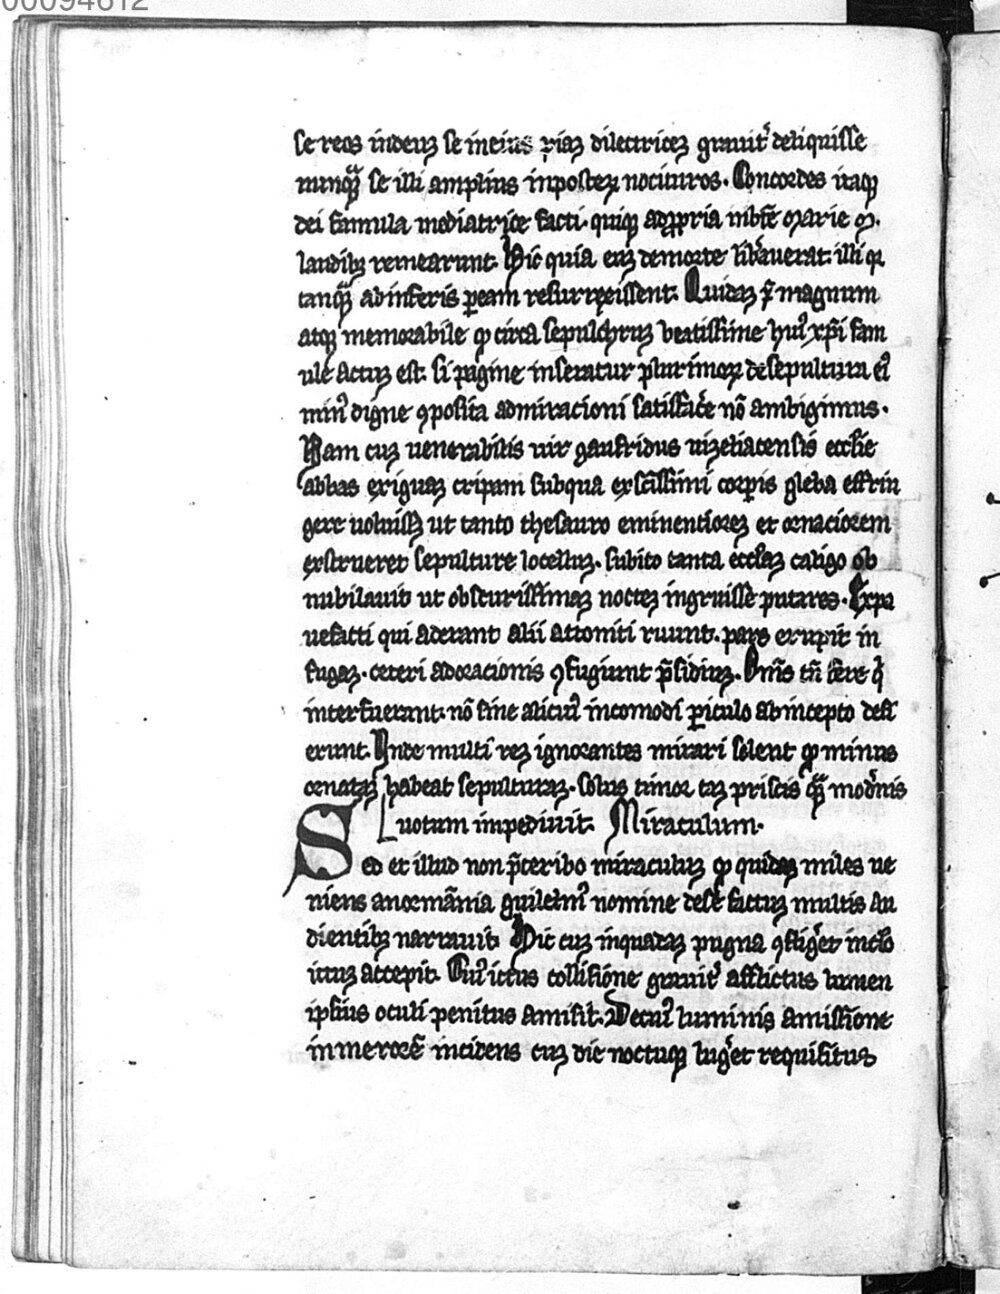 00094612
se reos in deuʒ se in eius xp̄iaʒ dilectriceʒ grauit᷑ deliquisse
nunqᷓ se illi amplius in posteꝝ nocituros. Concordes itaqꝫ
dei famula mediatrice facti. quiqꝫ ad ꝓpria in bt̄e marie m.
laudibꝫ remearunt. Hic quia eꝰ de morte lib᷑auerat. illi qꝛ
tanqᷓ ab inferis ꝑ eam resurrexissent. Quidaʒ magnum
atqꝫ memorabile ꝙ circa sepulchruʒ beatissime huiꝰ xp̄i fam
ule actuʒ est. si pagine inseratur plurimoꝝ de sepultura eiꝰ
minꝰ digne ꝯposita admiracioni satisfac̄e nō ambigimus.
Nam cuʒ uenerabilis uir gaufridus uizeliacensis ecclie
abbas exiguaʒ criptam sub qua ex sc̄issimi corꝑis gleba effrin
gere uoluissʒ ut tanto thesauro eminentioreʒ et ornaciorem
exstrueret sepulture locelluʒ. subito tanta eccl̄aʒ caligo ob
nubilauit ut obscurissimaʒ nocteʒ ingruisse putares. Expa
uefacti qui aderant alii attoniti ruunt. pars erupit in
fugaʒ. ceteri adoracionis ꝯfugiunt p̄sidiuʒ. Om̄s tn̄ fere qͥ
interfuerant. nō sine alicuiꝰ incomodi ꝑiculo ab incepto desti
erunt. Inde multi reʒ ignorantes mirari solent ꝙ minus
ornataʒ habeat sepulturaʒ. solus timor taʒ priscis qᷓ mod᷑nis
uotum impediuit. Miraculum.
Sed et illud non p̄teribo miraculuʒ ꝙ quidaʒ miles ue
niens a normānia guilelmꝰ nomine de se factuʒ multis au
dientibꝫ narrauit. Hic cuʒ in quadaʒ pugna ꝯflig᷑et in oclo
ictuʒ accepit. Cuiꝰ ictus collisione grauit᷑ afflictus lumen
ipsius oculi penitus amisit. De cuiꝰ luminis amissione
in merorē incidens cuʒ die noctuqꝫ lug᷑et requisitus